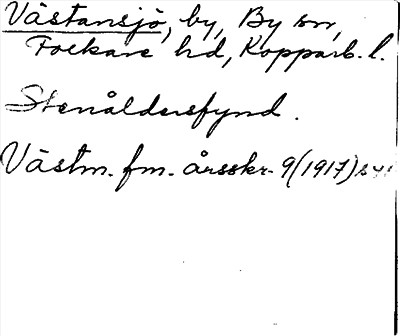 Västansjö, by, By sn,
Folkare hd, Kopparb. l.
Stenåldersfynd.
Västm. fm. årsskr. 9(1917)